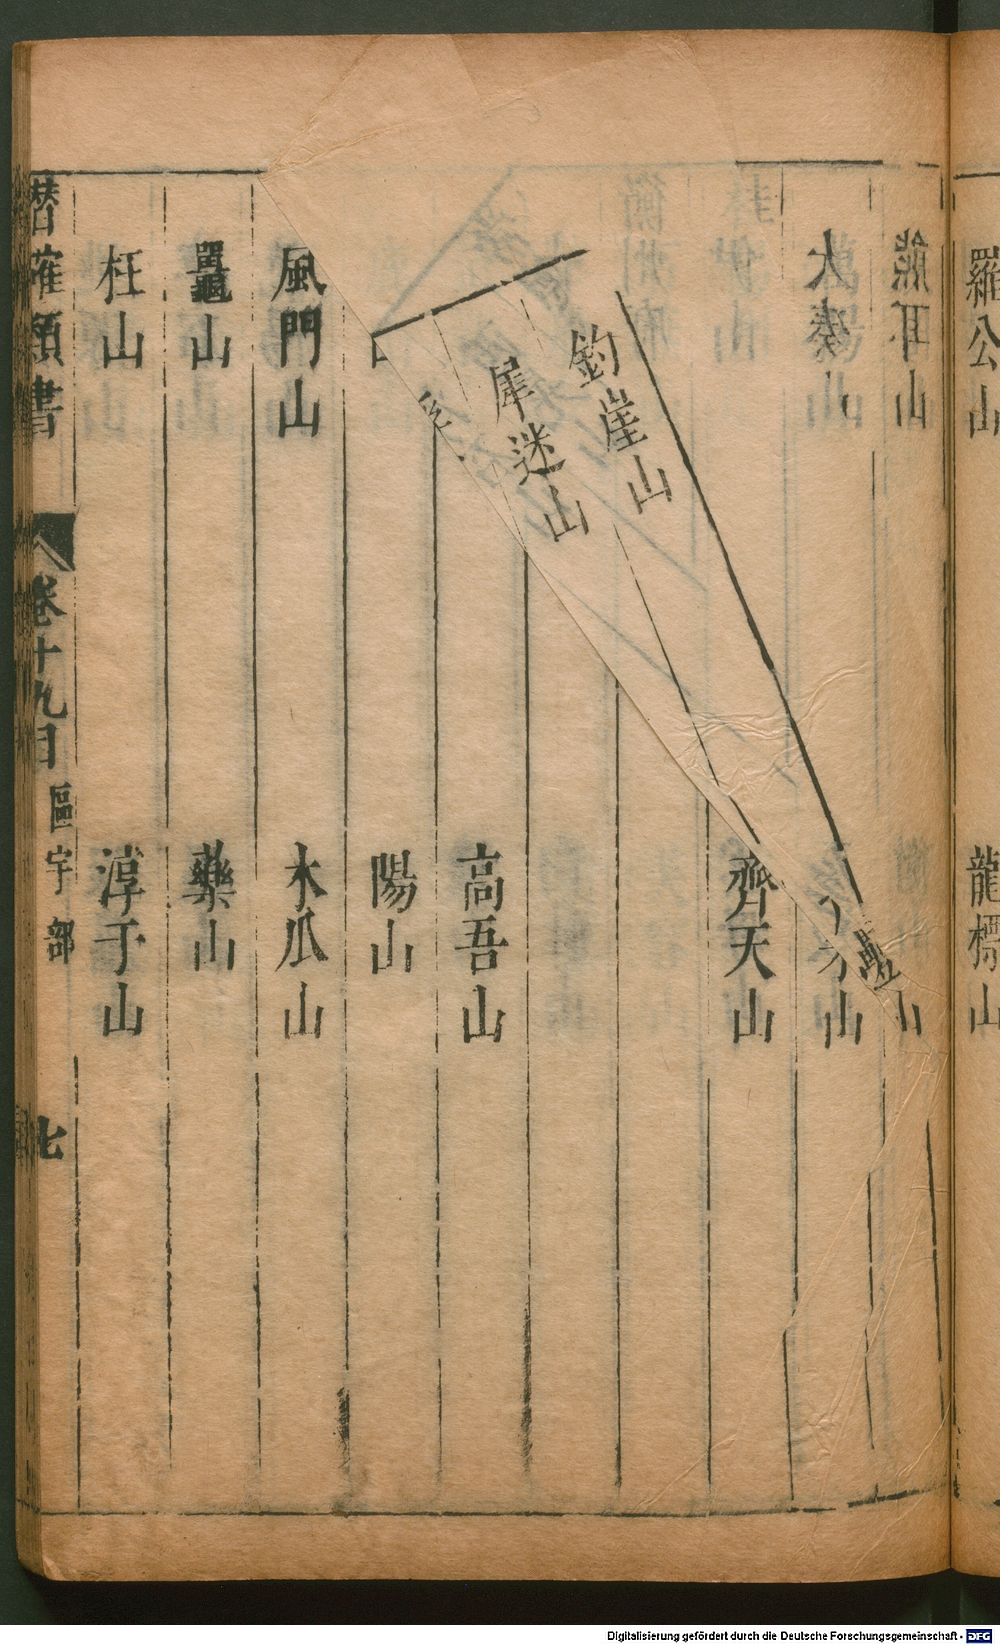 羅公山 龍標山
熊耳山
大湊山
齊天山
釣崖山
犀迷山
高吾山
陽山
風門山 木瓜山
鼉山 藥山
枉山 淳于山
潛確類書 卷十九 區宇部 七
Digitalisierung gefördert durch die Deutsche Forschungsgemeinschaft - DFG